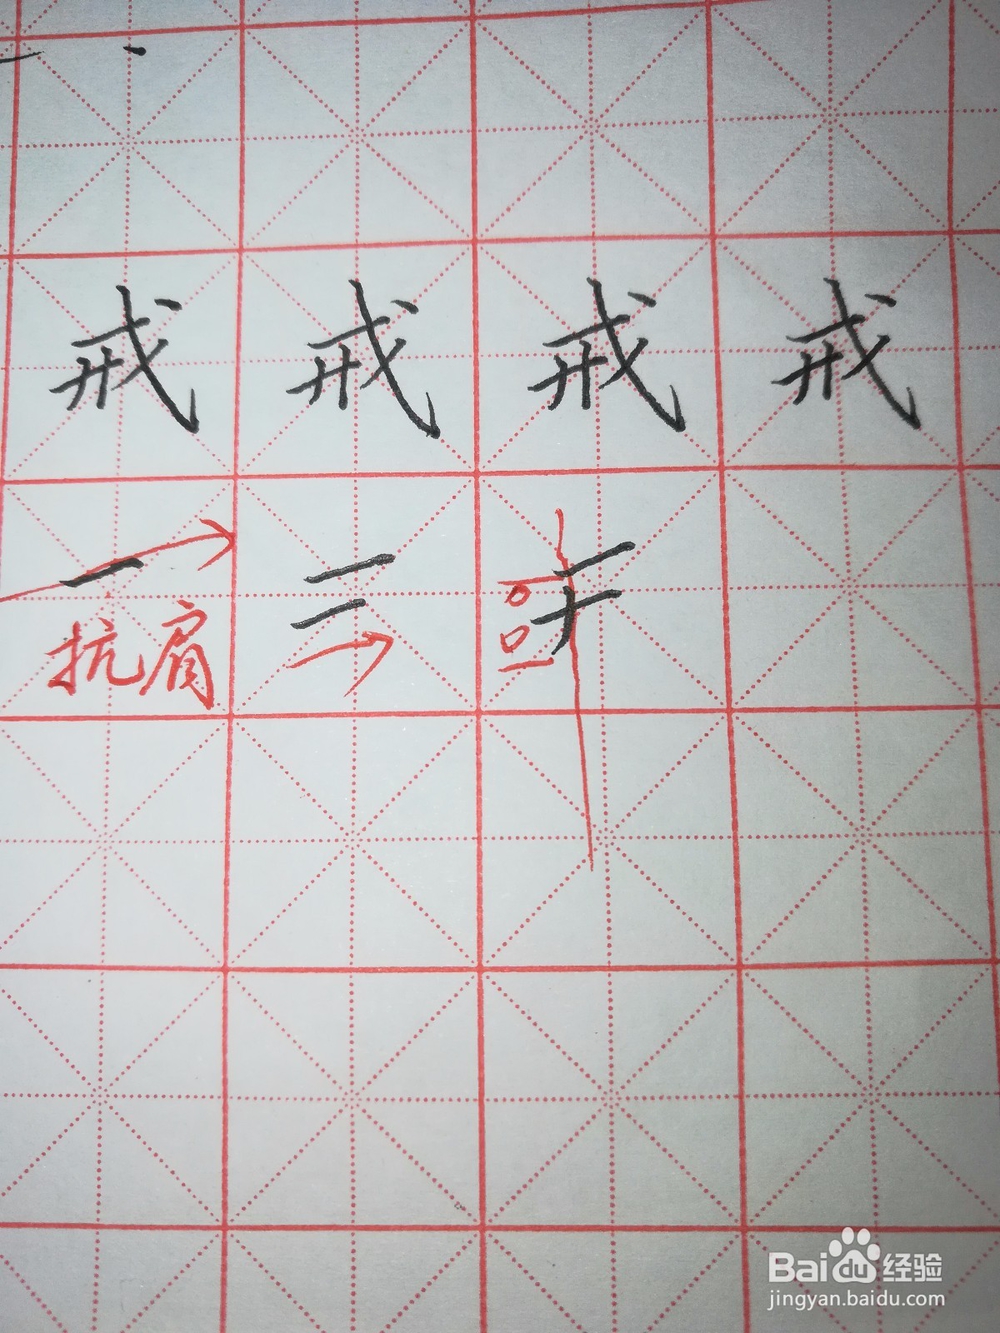 戒 戒 戒 戒
抗肩
Baidu 经验
jingyan.baidu.com